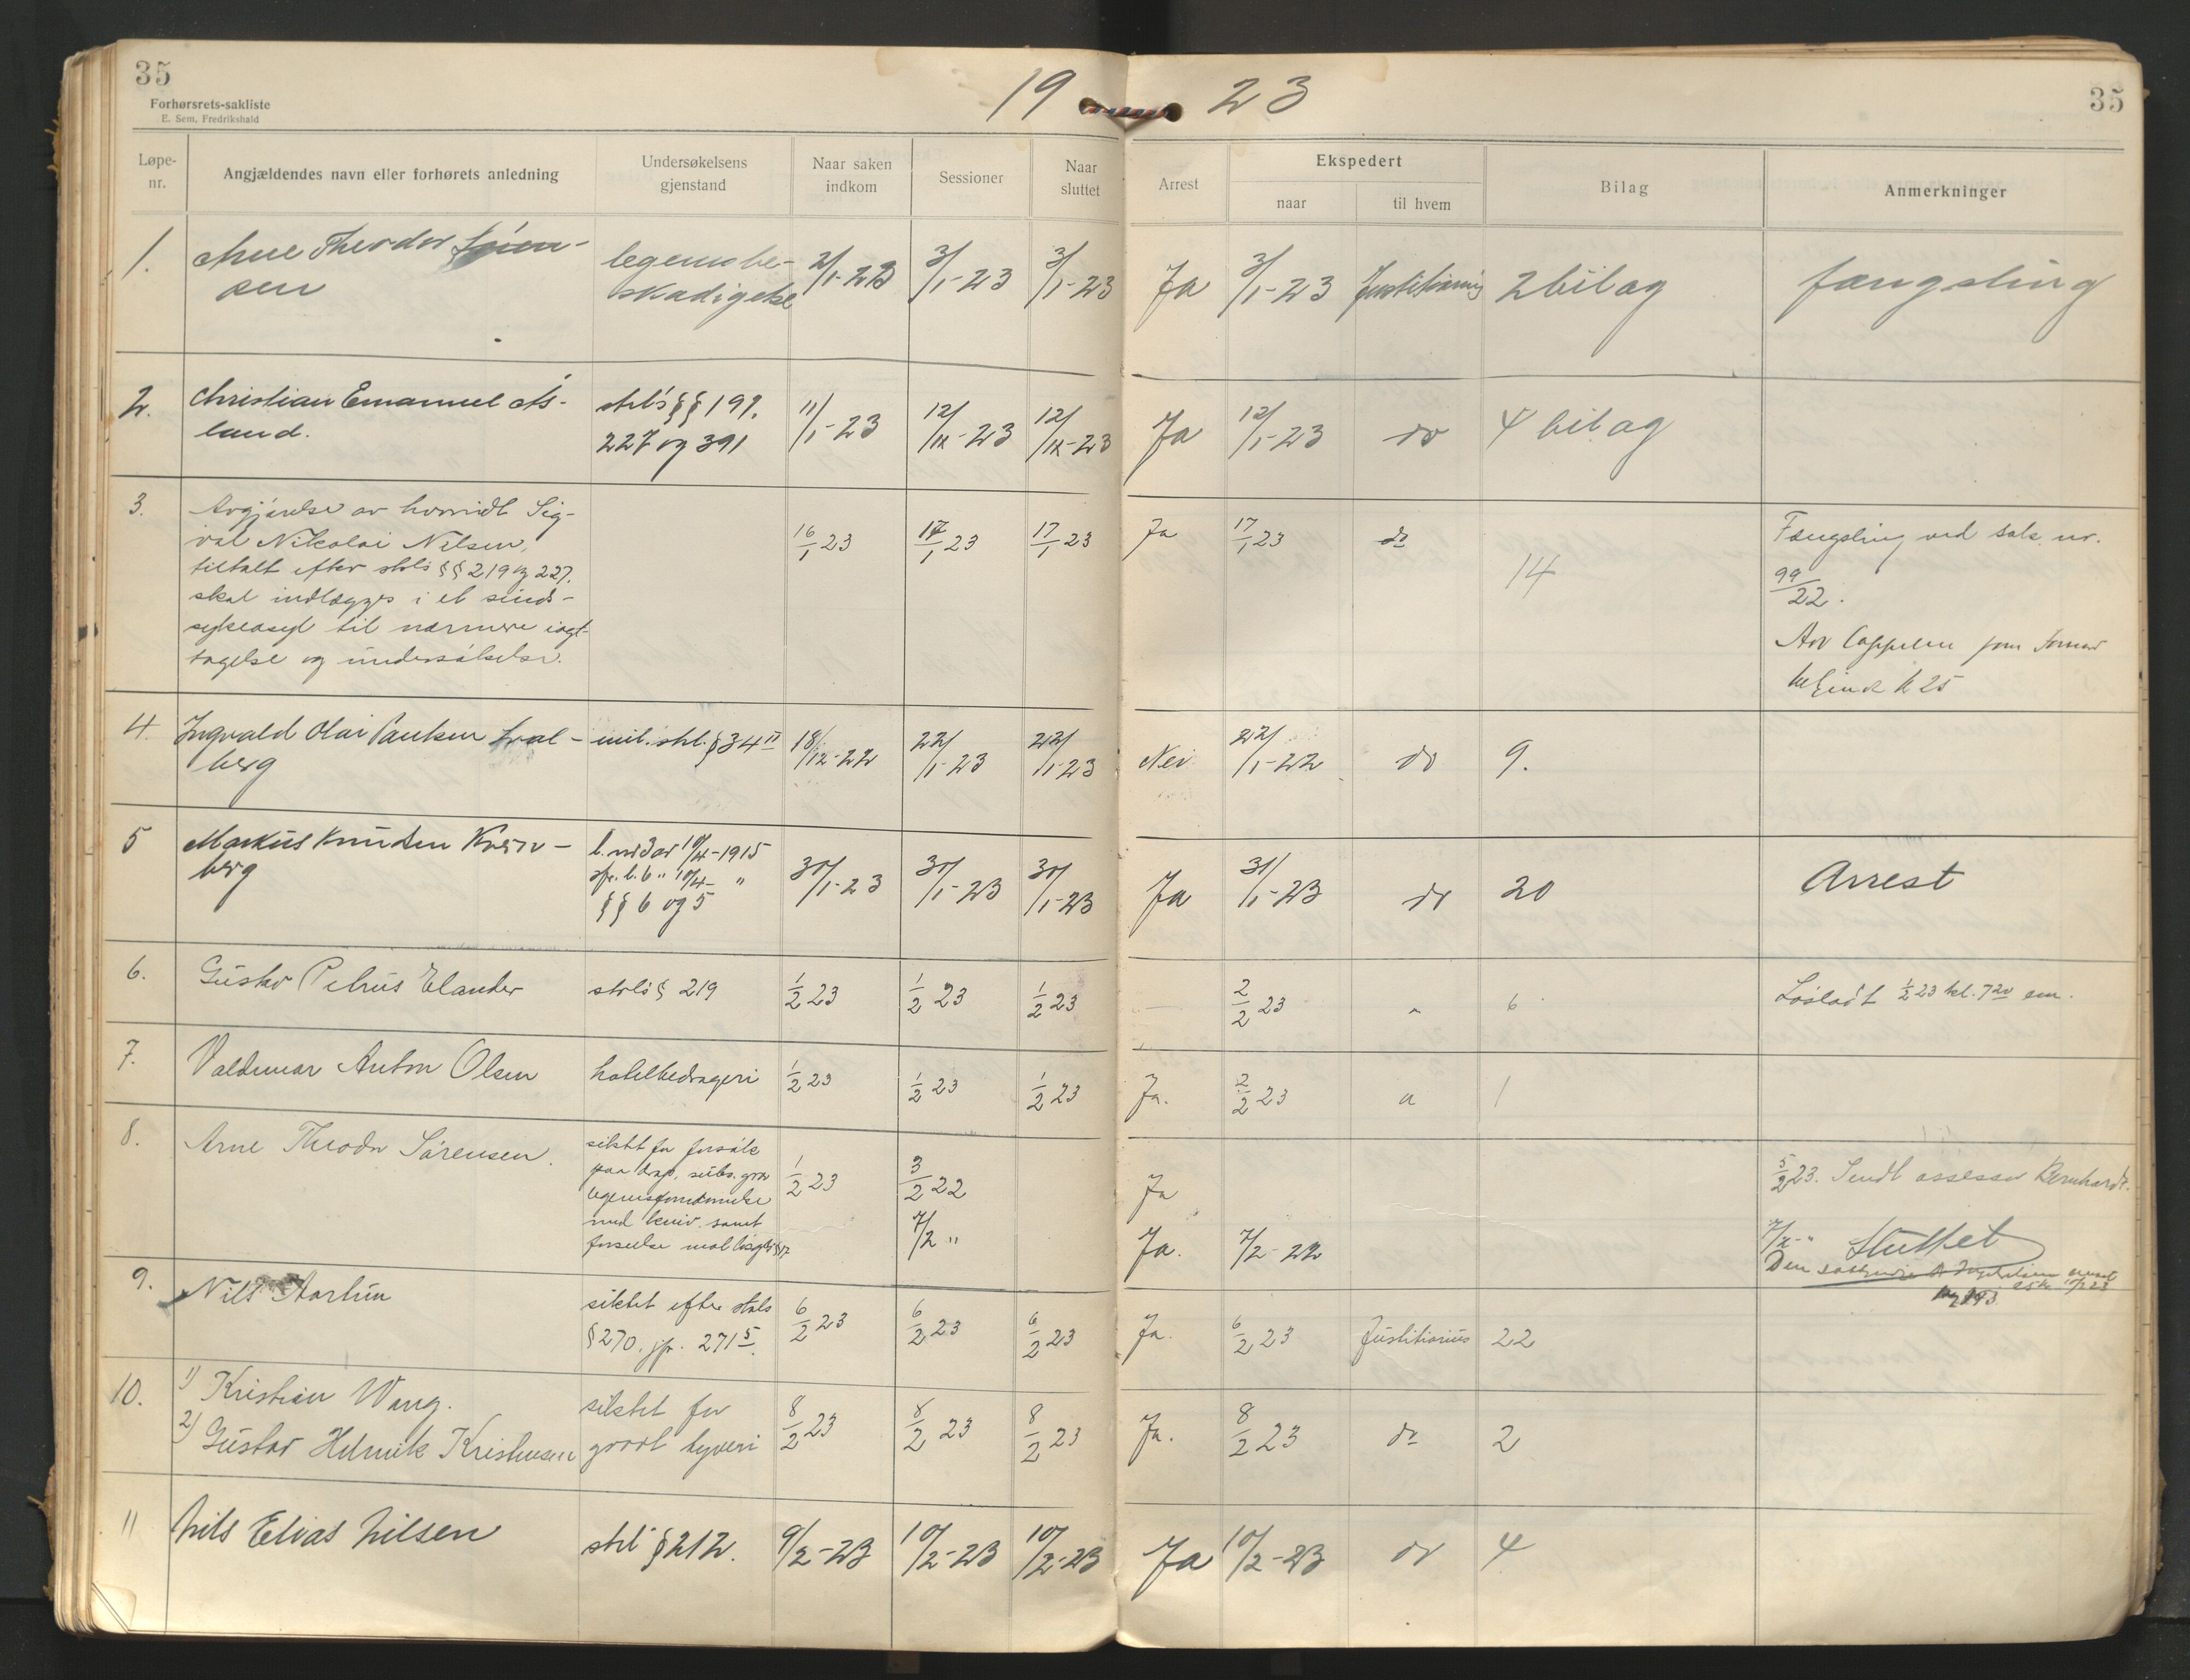 35
Forhørsrets-sakliste
E. Sem, Fredrikshald
19 23
35
Løpe-nr.
Angjældendes navn eller forhørets anledning
Undersøkelsens gjenstand
Naar saken indkom
Sessioner
Naar sluttet
Arrest
Ekspedert
naar
til hvem
Bilag
Anmerkninger
1. Arne Theodor Sören- legemsbe- 2/1-23 3/1-23 3/1-23 Ja 3/1-23 Justitiarius 2 bilag fængsling
sen skadigelse
2. Christian Emanuel As- strl's §§ 197. 11/1-23 12/1-23 12/1-23 Ja 12/1-23 do 4 bilag
land. 227 og 391
3. Avgjörelse av hvorvidt Sig- 16/1 23 17/1 23 17/1 23 Ja 17/1 23 do 14 Fængsling ved sak nr.
val Nikolai Nilsen, 99/22.
tiltalt efter strls §§ 219 og 227.
skal indlægges i et sinds-
sykeasyl til nærmere iagt- Adv Cappelen som
tagelse og undersökelse. k 25
4. Ingvald Olai Paulsen Sval- mil. strl. § 34 18/12-22 22/1-23 22/1-23 Nei 22/1-22 do 9.
berg
5 Markus Knudsen Kvern- l. nr 3 av 10/4-1915 30/1-23 30/1-23 30/1-23 Ja 31/1-23 do 20 Arrest
berg jfr. l. 6 " 10/4- "
§§ 6 og 5
6. Gustav Petrus Elander strls § 219 1/2 23 1/2 23 1/2 23 2/2 23 " 6 Löslatt 1/2 23 kl. 7 20 em.
7. Valdemar Anton Olsen hotelbedrageri 1/2 23 1/2 23 1/2 23 Ja. 2/2 23 " 1
8. Arne Theodor Sörensen. siktet for forsök 1/2 23 3/2 22 Ja 5/2 23. Sendt assessor Bernhardt.
paa drap, subs. grov
legemsfornærmelse
med kniv samt 7/2 " Ja. 7/2-22 7/2-" Sluttet
forseelse mot
Den
9. Nils Aartun siktet efter strls 6/2 23 6/2 23 6/2 23 Ja. 6/2 23 Justitiarius 22
§ 270. jfr. 271 5.
10. 1) Kristian Wang. siktet for 8/2 23 8/2 23 8/2 23 Ja. 8/2 23 do 2
2) Gustav Henrik Kristensen grovt tyveri
11 Nils Elias Nilsen strl § 212. 9/2-23 10/2-23 10/2-23 Ja 10/2-23 do 4